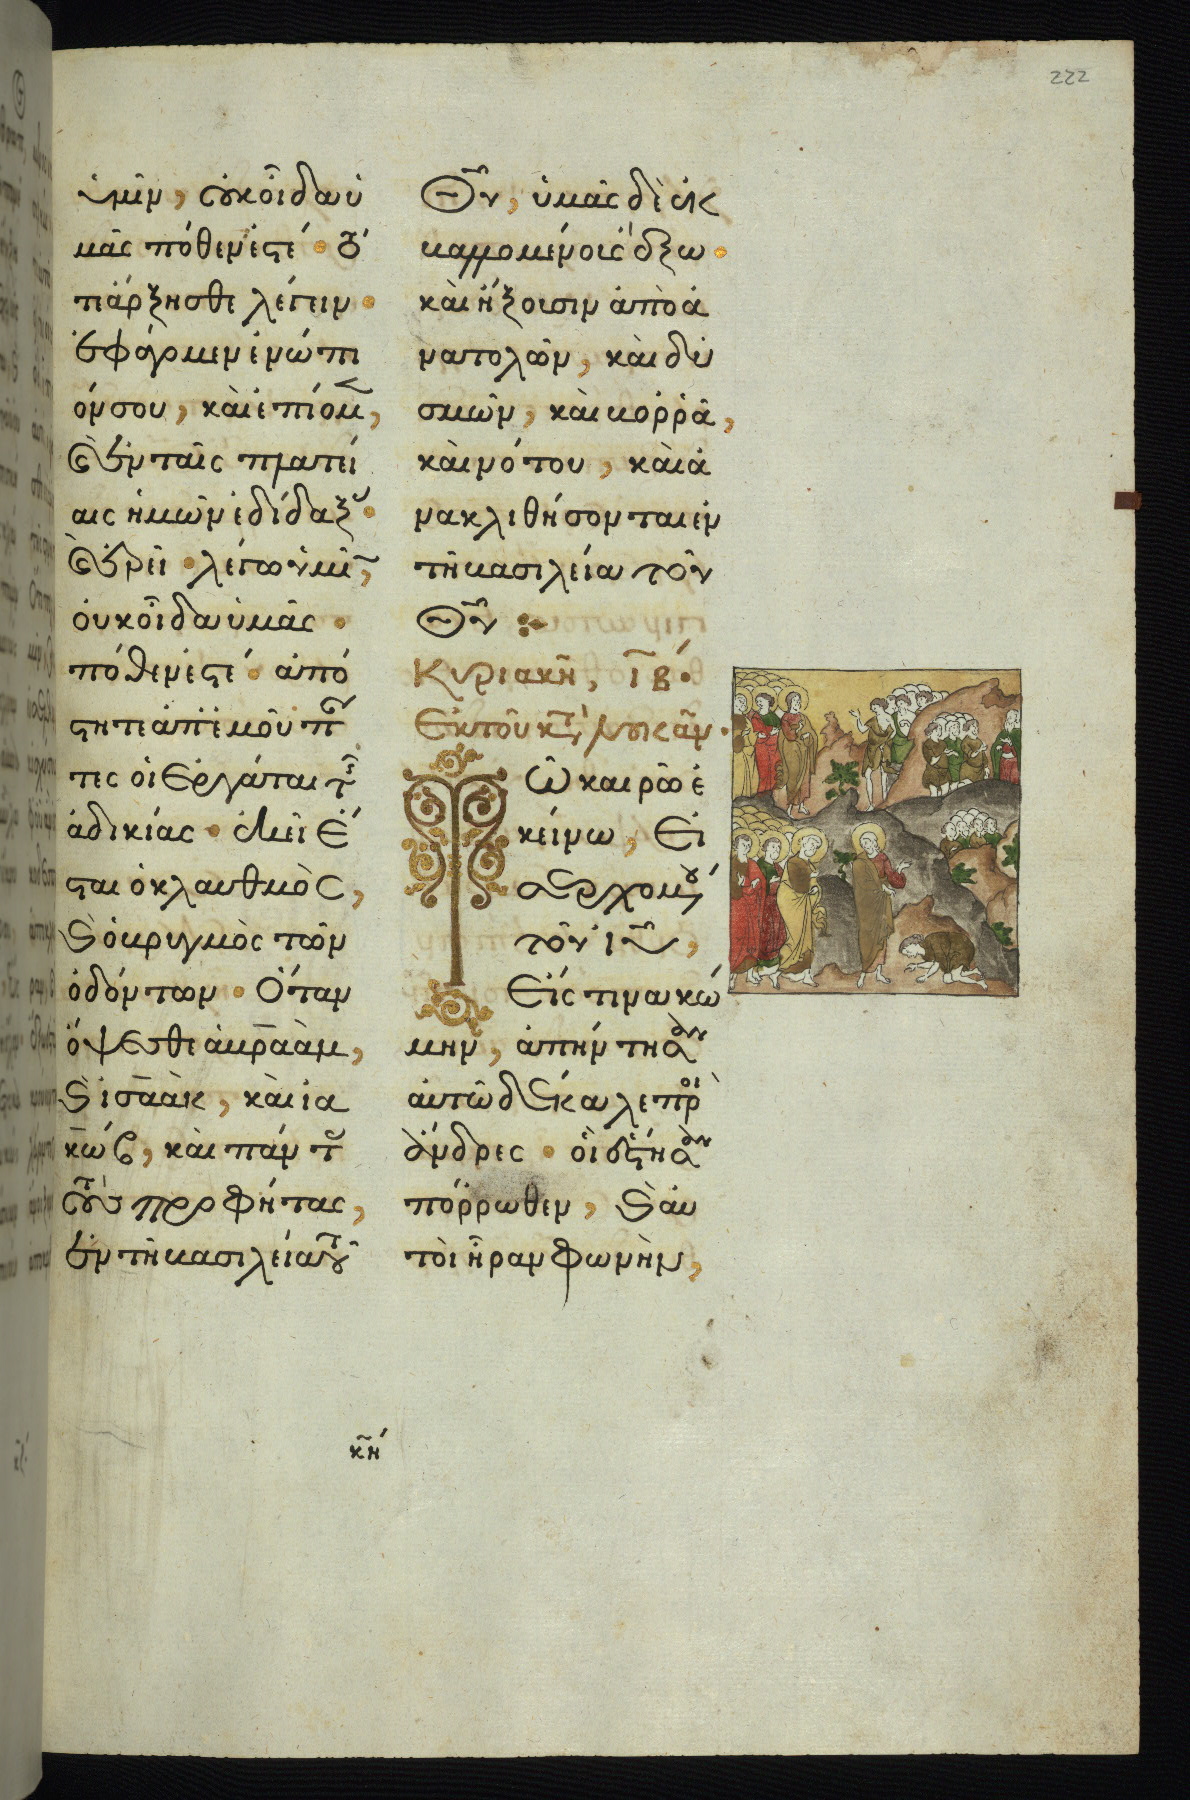 222
ὑμῖν, οὐκ οἶδα ὑ
μᾶς πόθεν ἐστέ· τό
τε ἄρξησθε λέγειν·
Ἐφάγομεν ἐνώπι
όν σου, καὶ ἐπίομ̅,
καὶ ἐν ταῖς πλατεί
αις ἡμῶν ἐδίδαξ·
καὶ ἐρεῖ· λέγω ὑμῖ̅,
οὐκ οἶδα ὑμᾶς·
πόθεν ἐστέ· ἀπό
στητε ἀπ' ἐμοῦ πάν
τες οἱ ἐργάται τ̅
ἀδικίας· ἐκεῖ ἔ
σται ὁ κλαυθμὸς,
καὶ ὁ βρυγμὸς τῶν
ὀδόντων· Ὅταν
ὄψεσθε ἀβρ̅αὰμ,
καὶ ἰσ̅αὰκ, καὶ ἰα
κ̅ὼβ, καὶ πάντ
τοὺς προφήτας,
ἐν τῇ βασιλεία τοῦ
Θῦ, ὑμᾶς δὲ ἐκ
βαλλομένους ἔξω·
καὶ ἥξουσιν ἀπὸ ἀ
νατολῶν, καὶ δυ
σμῶν, καὶ βορρᾶ,
καὶ νότου, καὶ ἀ
νακλιθήσονται ἐν
τῇ βασιλεία τοῦ
Θῦ
Κυριακῆ, ιβ·
Ἐκ τοῦ κτ, λουκᾶν·
Τῶ καιρῶ ἐ
κείνω, Εἰ
σερχομου
τοῦ ιῦ,
Εἴς τινα κώ
μην, ἀπήντησαν
αὐτῶ δέκα λεπροὶ
ἄνδρες· οἳ ἔστησαν
πόρρωθεν, καὶ αὐ
τοὶ ἦραν φωνὴν,
κη